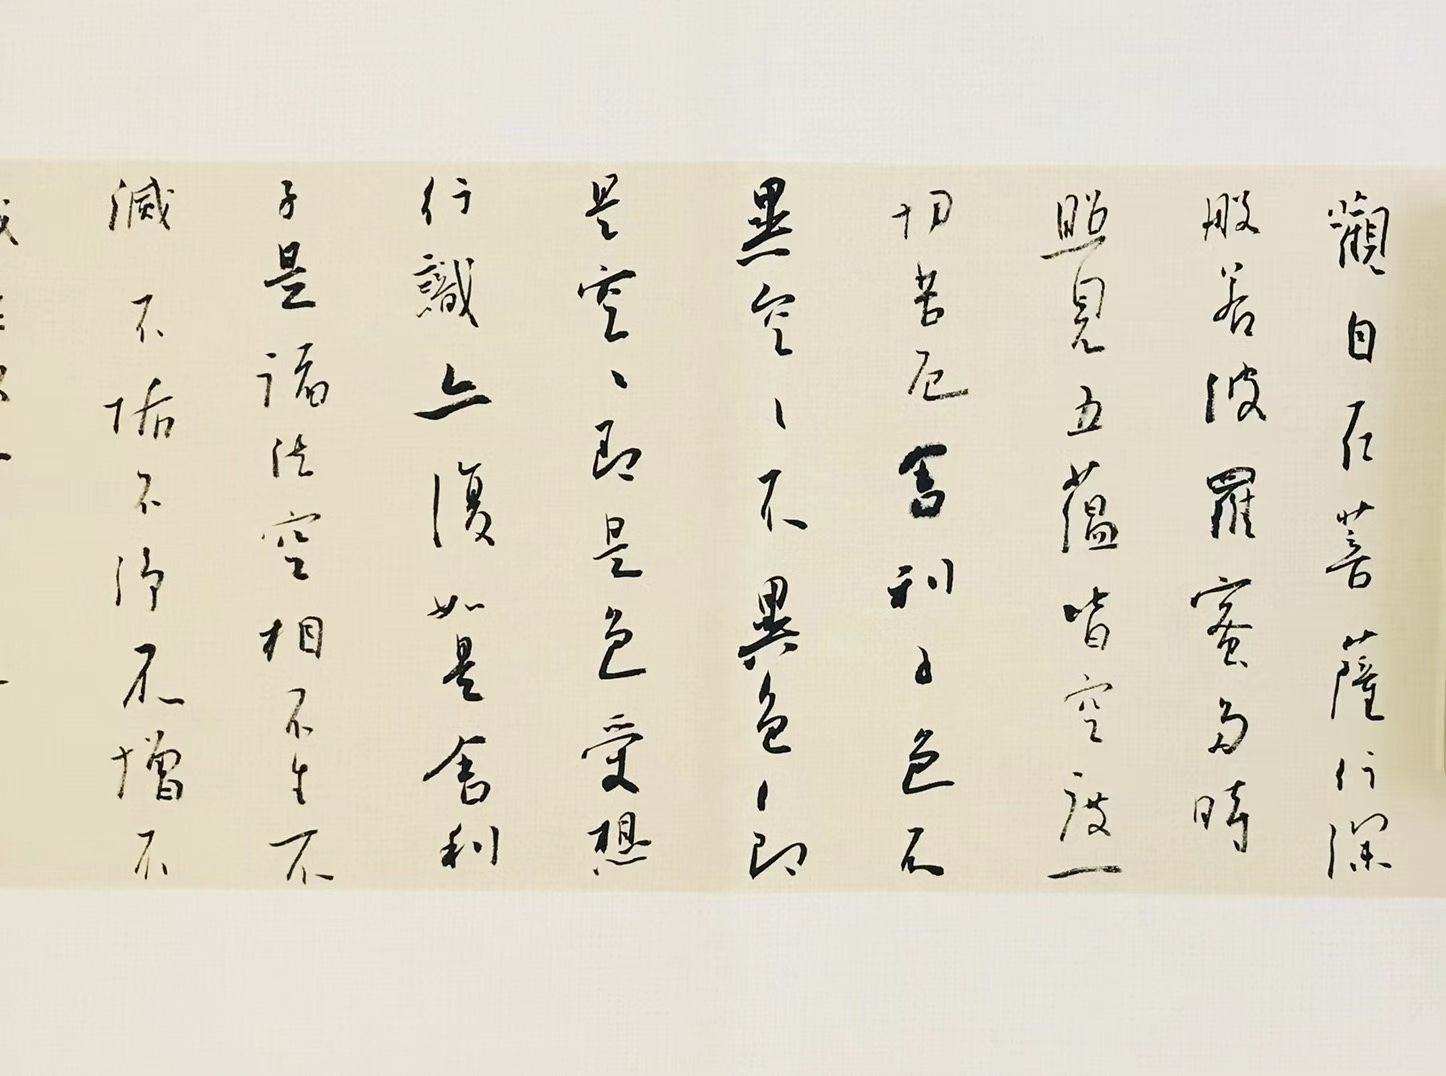 觀自在菩薩行深
般若波羅蜜多時
照見五蘊皆空度一
切苦厄舍利子色不
異空〻不異色〻即
是空〻即是色受想
行識亦復如是舍利
子是諸法空相不生不
滅不垢不淨不增不